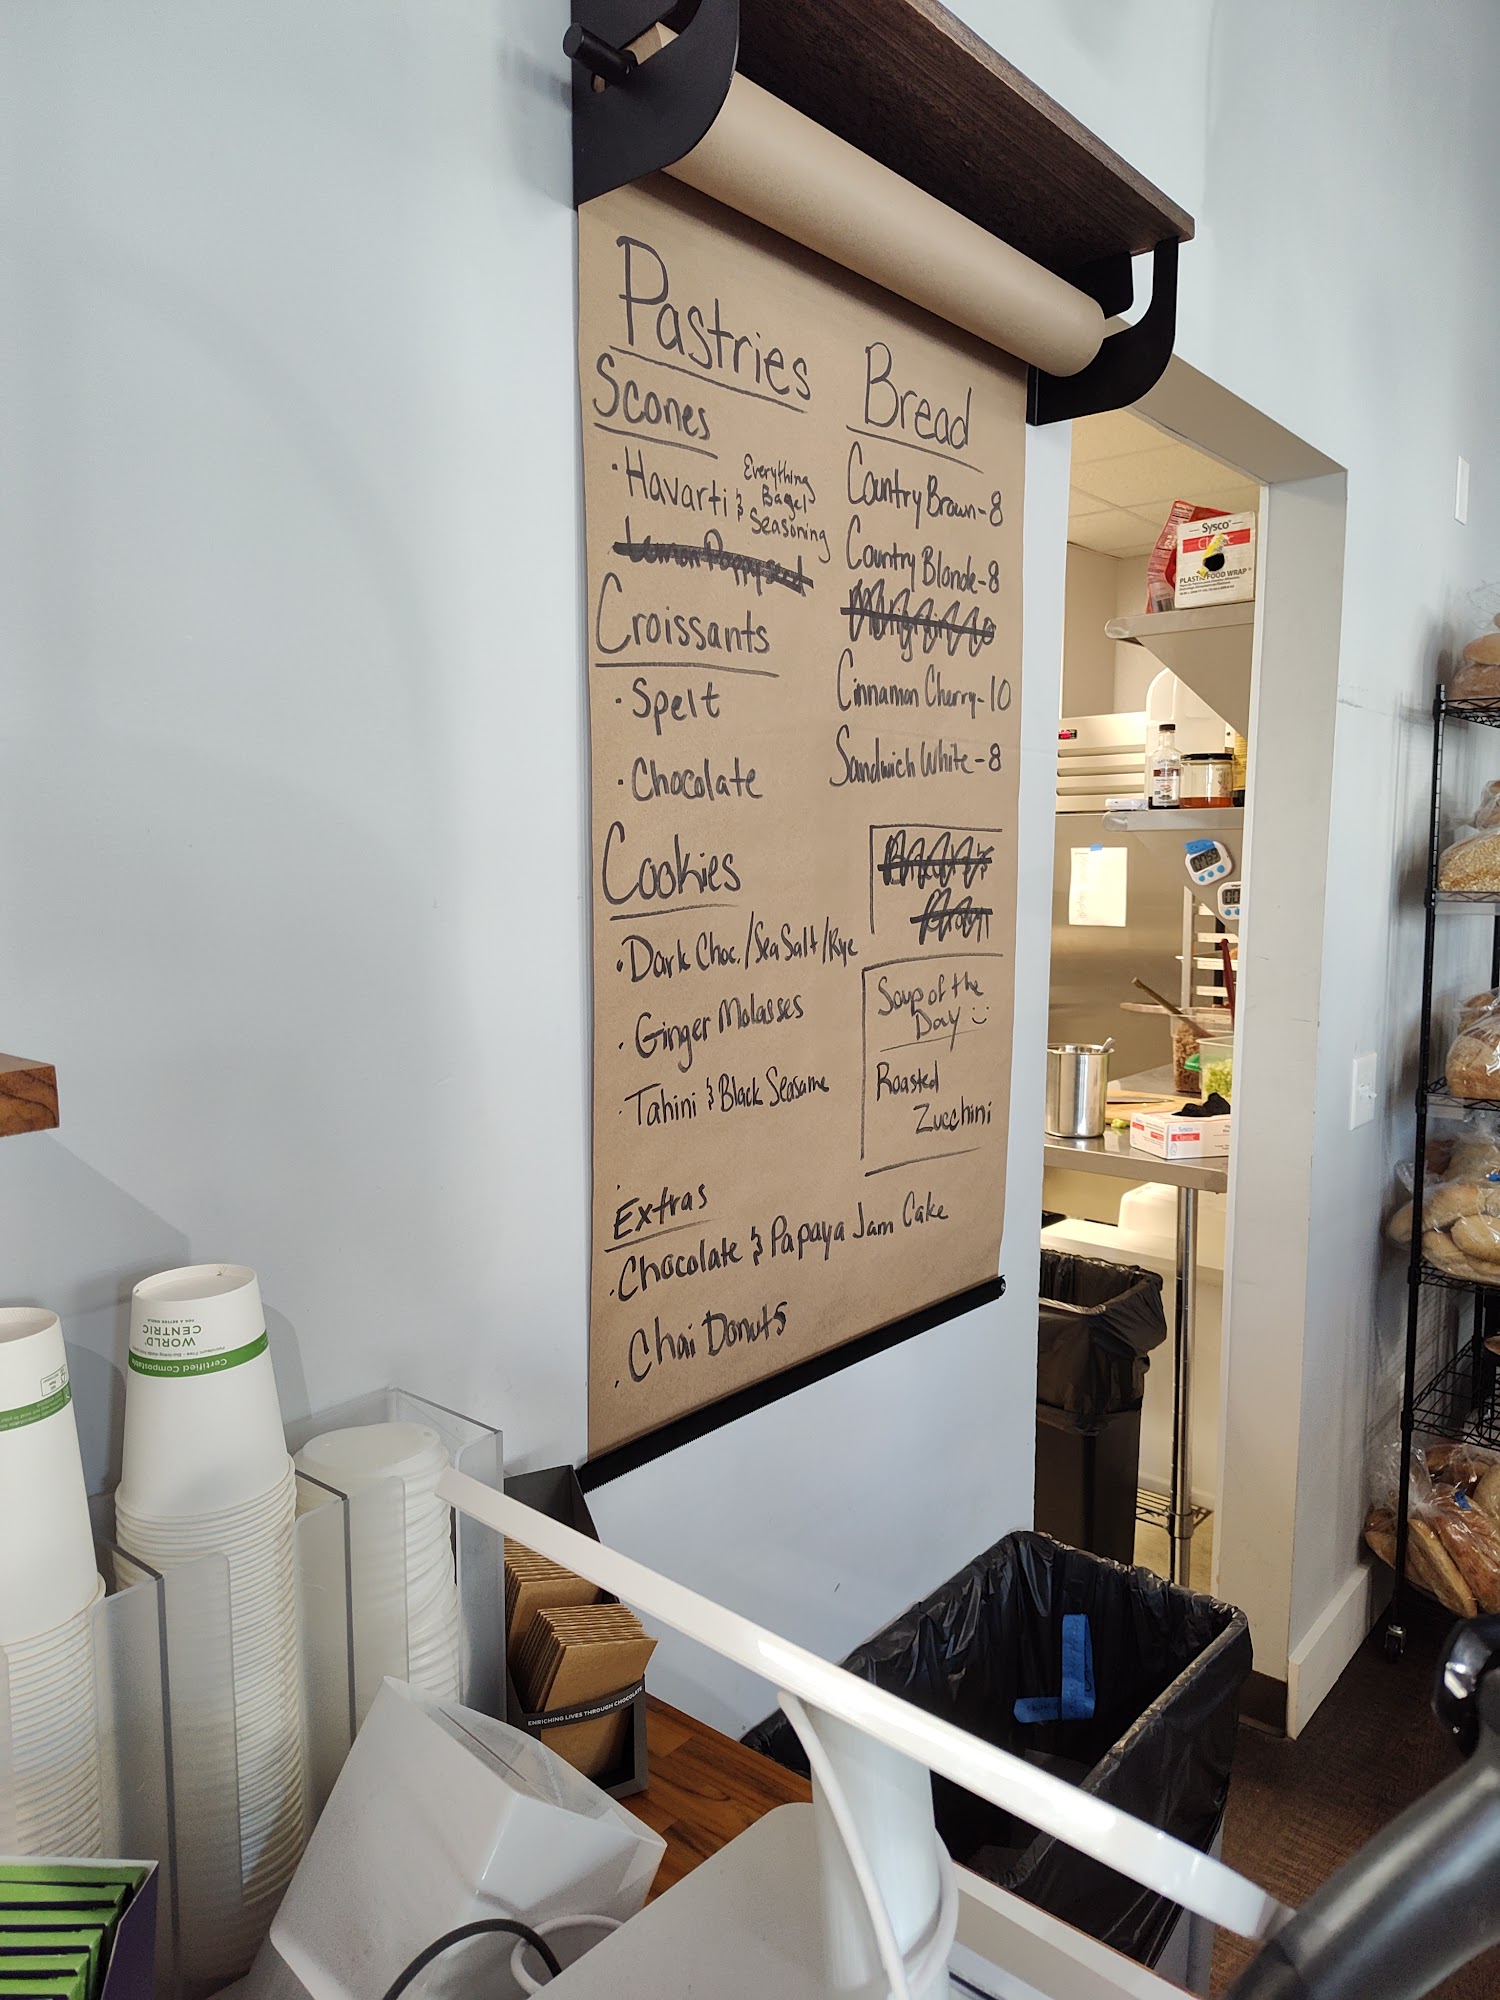 Pastries
Scones
· Havarti & Everything
Bagel
Seasoning
Lemon Poppyseed
Croissants
· Spelt
· Chocolate
Cookies
· Dark Choc./Sea Salt/Rye
· Ginger Molasses
· Tahini & Black Seasame
Extras
· Chocolate & Papaya Jam Cake
· Chai Donuts
Bread
Country Brown-8
Country Blonde-8
Cinnamon Cherry-10
Sandwich White-8
Soup of the
Day
Roasted
Zucchini
Sysco
Classic
PLASTIC FOOD WRAP
Sysco
Classic
WORLD
CENTRIC
FOR A BETTER WORLD
Certified Compostable
ENRICHING LIVES THROUGH CHOCOLATE